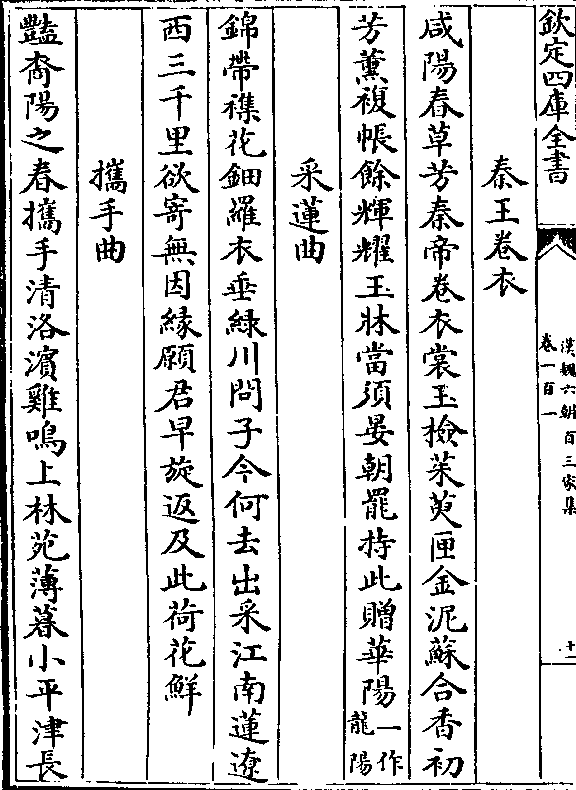 欽定四庫全書
漢魏六朝百三家集
卷一百一
十一
秦王卷衣
咸陽春草芳秦帝卷衣裳玉檢茱萸匣金泥蘇合香初
芳薰複帳餘輝耀玉牀當須晏朝罷持此贈華陽一作龍陽
采蓮曲
錦帶襍花鈿羅衣垂緑川問子今何去出采江南蓮遼
西三千里欲寄無因縁願君早旋返及此荷花鮮
攜手曲
豔裔陽之春攜手清洛濱雞鳴上林苑薄暮小平津長